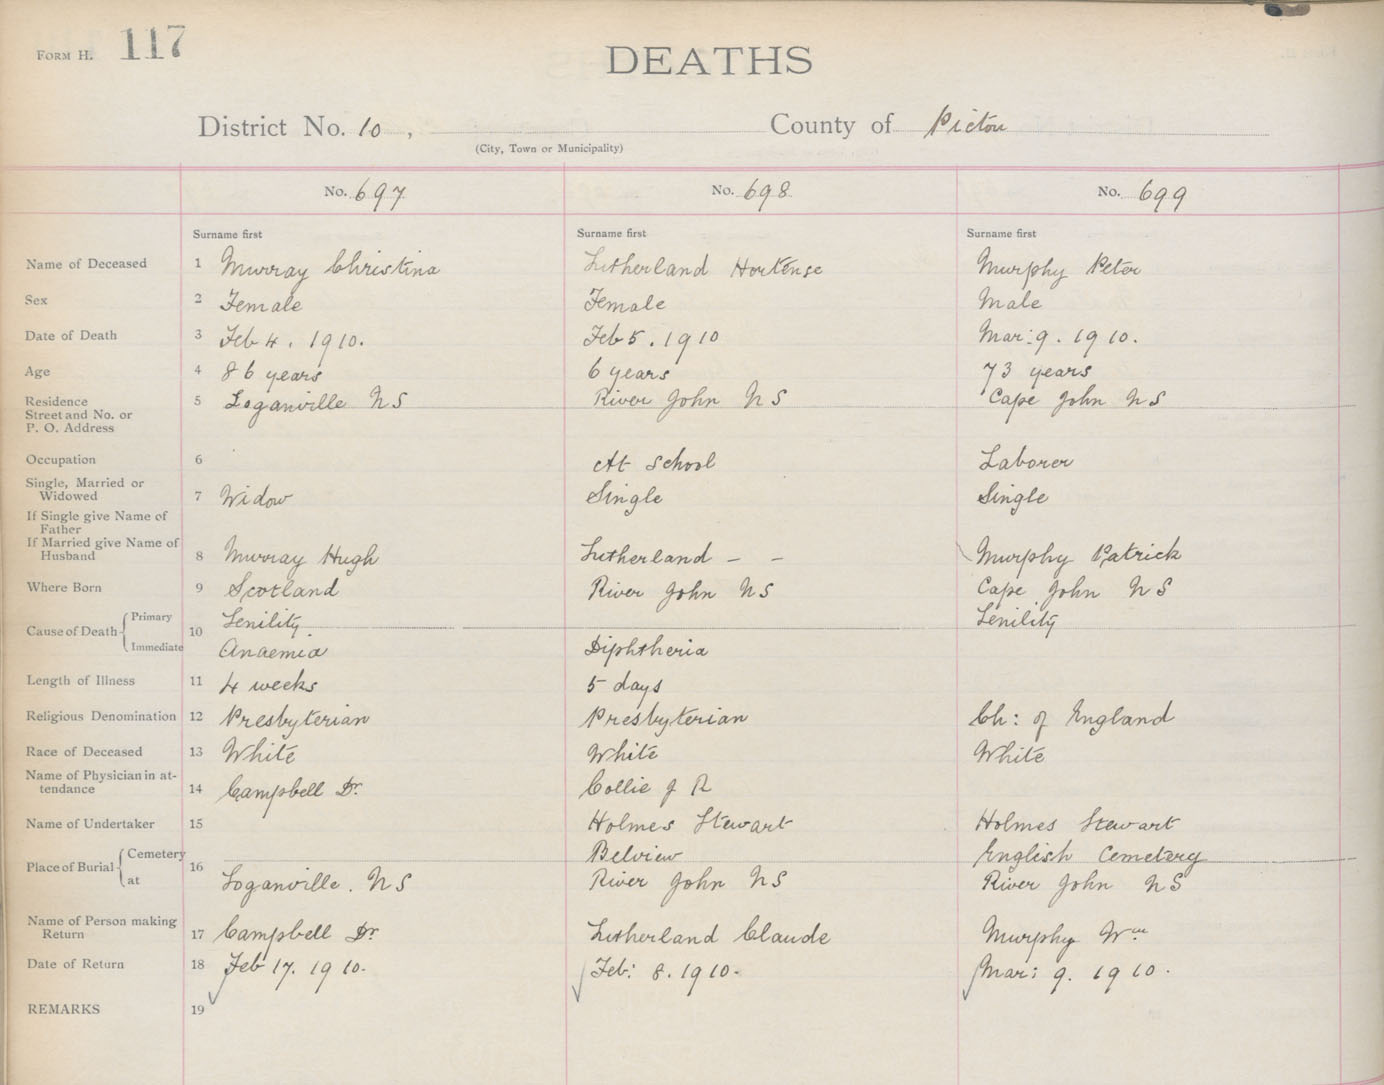 FORM H. 117
DEATHS
District No. 10 , County of Pictou
(City, Town or Municipality)
No. 697 No. 698 No. 699
Surname first Surname first Surname first
Name of Deceased 1 Murray Christina Sutherland Hortense Murphy Peter
Sex 2 Female Female Male
Date of Death 3 Feb 4. 1910. Feb 5. 1910 Mar: 9. 1910.
Age 4 86 years 6 years 73 years
Residence
Street and No. or
P. O. Address 5 Loganville N S River John N S Cape John N S
Occupation 6 At School Laborer
Single, Married or
Widowed 7 Widow Single Single
If Single give Name of
Father
If Married give Name of
Husband 8 Murray Hugh Sutherland – – Murphy Patrick
Where Born 9 Scotland River John N S Cape John N S
Cause of Death 10
Primary Senility Senility
Immediate Anaemia Diphtheria
Length of Illness 11 4 weeks 5 days
Religious Denomination 12 Presbyterian Presbyterian Ch: of England
Race of Deceased 13 White White White
Name of Physician in at-
tendance 14 Campbell Dr. Collie J R
Name of Undertaker 15 Holmes Stewart Holmes Stewart
Place of Burial 16
Cemetery Belview English Cemetery
at Loganville. N S River John N S River John N S
Name of Person making
Return 17 Campbell Dr Sutherland Claude Murphy Wm
Date of Return 18 Feb 17. 1910. Feb: 8. 1910. Mar: 9. 1910.
REMARKS 19